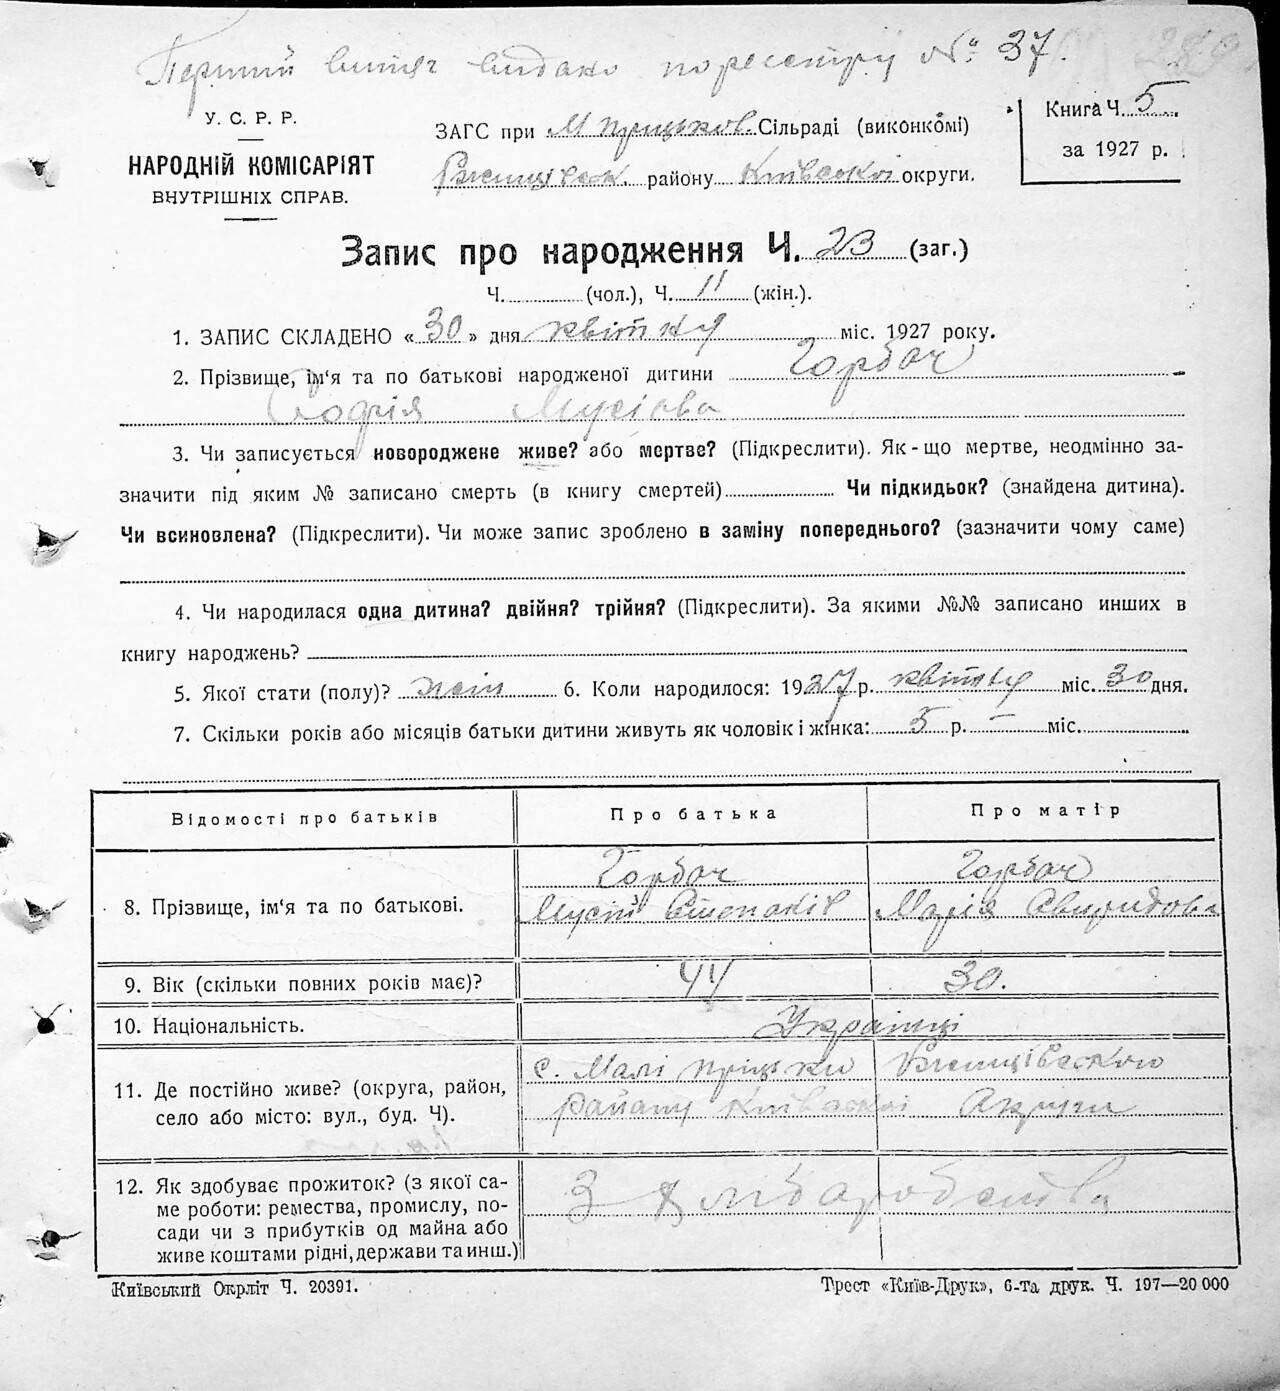 Перший витяг видано по реєстру № 37.
У. С. Р. Р.
НАРОДНІЙ КОМІСАРІЯТ
ВНУТРІШНІХ СПРАВ.
ЗАГС при М Прицьков. Сільраді (виконкомі)
Ржищівськ. району Київської округи.
Книга Ч. 5
за 1927 р.
Запис про народження Ч. 23 (заг.)
Ч. (чол.), Ч. 11 (жін.).
1. ЗАПИС СКЛАДЕНО «30» дня квітня міс. 1927 року.
2. Прізвище, ім'я та по батькові народженої дитини Горбач
Софія Мусіова
3. Чи записується новороджене живе? або мертве? (Підкреслити). Як-що мертве, неодмінно за-
значити під яким № записано смерть (в книгу смертей) Чи підкидьок? (знайдена дитина).
Чи всиновлена? (Підкреслити). Чи може запис зроблено в заміну попереднього? (зазначити чому саме)
4. Чи народилася одна дитина? двійня? трійня? (Підкреслити). За якими №№ записано инших в
книгу народжень?
5. Якої стати (полу)? жін 6. Коли народилося: 1927 р. квітня міс. 30 дня.
7. Скільки років або місяців батьки дитини живуть як чоловік і жінка: 5 р. — міс.
Відомості про батьків Про батька Про матір
Горбач Горбач
8. Прізвище, ім'я та по батькові. Мусій Степанів Марія Свиридова
9. Вік (скільки повних років має)? 44 30.
10. Національність. Українці
11. Де постійно живе? (округа, район,
село або місто: вул., буд. Ч).
с. Малі Пріцьки Ржищівського
району Київської Округи
12. Як здобуває прожиток? (з якої са-
ме роботи: ремества, промислу, по-
сади чи з прибутків од майна або
живе коштами рідні, держави та инш.)
З хліборобства
Київський Окрліт Ч. 20391.
Трест «Київ-Друк», 6-та друк. Ч. 197—20 000